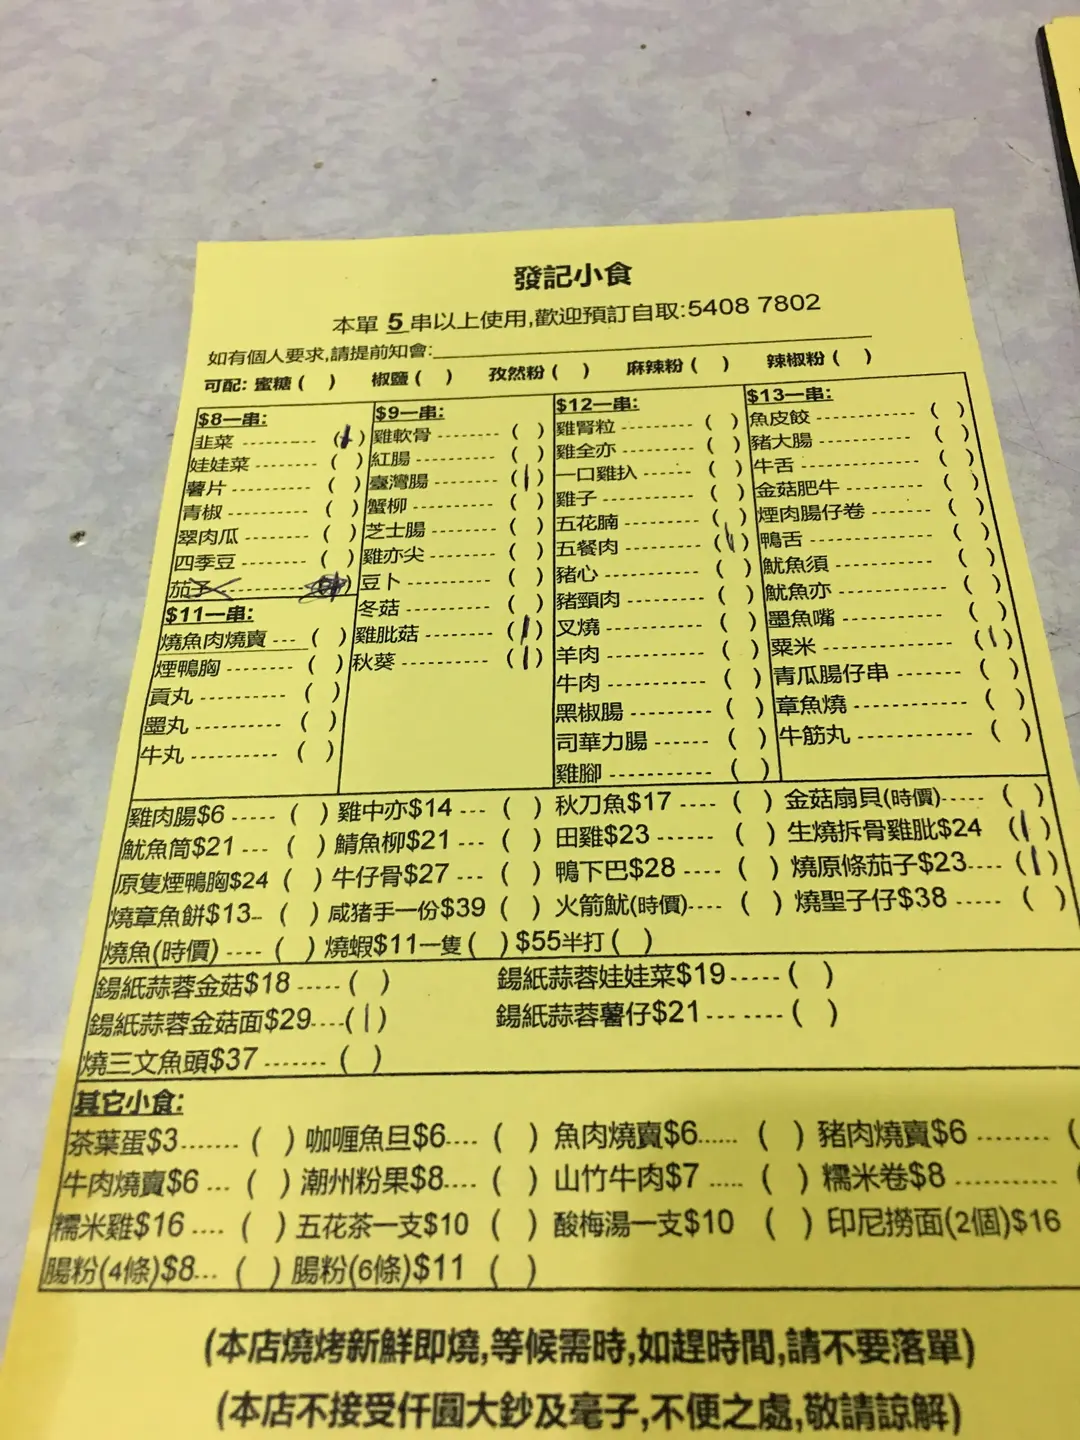 發記小食
本單 5 串以上使用,歡迎預訂自取:5408 7802
如有個人要求,請提前知會:
可配: 蜜糖 ( ) 椒鹽 ( ) 孜然粉 ( ) 麻辣粉 ( ) 辣椒粉 ( )
$8一串:
韭菜 ---------- ( )
娃娃菜 -------- ( )
薯片 ----------- ( )
青椒 ----------- ( )
翠肉瓜 --------- ( )
四季豆 --------- ( )
茄子 ----------- ( )
$11一串:
燒魚肉燒賣 --- ( )
煙鴨胸 -------- ( )
貢丸 ----------- ( )
墨丸 ----------- ( )
牛丸 ----------- ( )
$9一串:
雞軟骨 -------- ( )
紅腸 ----------- ( )
臺灣腸 -------- ( | )
蟹柳 ----------- ( )
芝士腸 -------- ( )
雞亦尖 -------- ( )
豆卜 ----------- ( )
冬菇 ----------- ( )
雞肶菇 -------- ( | )
秋葵 ----------- ( | )
$12一串:
雞腎粒 --------- ( )
雞全亦 --------- ( )
一口雞扒 ------- ( )
雞子 ----------- ( )
五花腩 --------- ( )
五餐肉 --------- ( | )
豬心 ----------- ( )
豬頸肉 --------- ( )
叉燒 ----------- ( )
羊肉 ----------- ( )
牛肉 ----------- ( )
黑椒腸 --------- ( )
司華力腸 ------ ( )
雞腳 ----------- ( )
$13一串:
魚皮餃 ------------ ( )
豬大腸 ------------ ( )
牛舌 -------------- ( )
金菇肥牛 ---------- ( )
煙肉腸仔卷 -------- ( )
鴨舌 -------------- ( )
魷魚須 ------------ ( )
魷魚亦 ------------ ( )
墨魚嘴 ------------ ( )
粟米 -------------- ( | )
青瓜腸仔串 ------- ( )
章魚燒 ------------ ( )
牛筋丸 ------------ ( )
雞肉腸$6 ----- ( ) 雞中亦$14 --- ( ) 秋刀魚$17 ---- ( ) 金菇扇貝(時價)----- ( )
魷魚筒$21 --- ( ) 鯖魚柳$21 --- ( ) 田雞$23 ------ ( ) 生燒拆骨雞肶$24 ( | )
原隻煙鴨胸$24 ( ) 牛仔骨$27 --- ( ) 鴨下巴$28 ---- ( ) 燒原條茄子$23---- ( | )
燒章魚餅$13-- ( ) 咸猪手一份$39 ( ) 火箭魷(時價)---- ( ) 燒聖子仔$38 ----- ( )
燒魚(時價) ---- ( ) 燒蝦$11一隻 ( ) $55半打 ( )
錫紙蒜蓉金菇$18 ----- ( ) 錫紙蒜蓉娃娃菜$19 ----- ( )
錫紙蒜蓉金菇面$29---- ( | ) 錫紙蒜蓉薯仔$21 --- ---- ( )
燒三文魚頭$37 ------- ( )
其它小食:
茶葉蛋$3....... ( ) 咖喱魚旦$6.... ( ) 魚肉燒賣$6...... ( ) 豬肉燒賣$6 ......... (
牛肉燒賣$6 ... ( ) 潮州粉果$8.... ( ) 山竹牛肉$7 ..... ( ) 糯米卷$8 ............
糯米雞$16 .... ( ) 五花茶一支$10 ( ) 酸梅湯一支$10 ( ) 印尼撈面(2個)$16
腸粉(4條)$8... ( ) 腸粉(6條)$11 ( )
(本店燒烤新鮮即燒,等候需時,如趕時間,請不要落單)
(本店不接受仟圓大鈔及毫子,不便之處,敬請諒解)